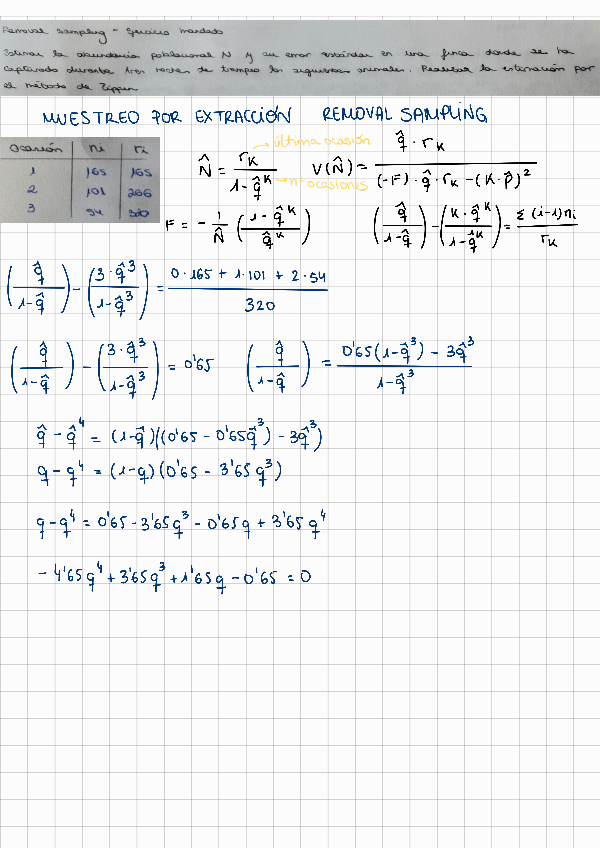 Removal Sampling - Ejercicio mandado
Estimar la abundancia poblacional N y su error estándar en una finca donde se ha
capturado durante tres noches de trampeo los siguientes animales. Realizar la estimación por
el método de Zippin
MUESTREO POR EXTRACCIÓN REMOVAL SAMPLING
Ocasión ni ri
1 165 165
2 101 266
3 54 320
N̂ = rK / (1-q̂^K)
→ última ocasión
→ nº ocasiones
V(N̂) = (q̂ · rK) / ((-F) · q̂ · rK - (K · P̂)²)
F = - 1/N̂ ((1-q̂^K) / q̂^K)
(q̂ / (1-q̂)) - (K · q̂^K / (1-q̂^K)) = Σ(i-1)ni / rK
(q̂ / (1-q̂)) - (3 · q̂³ / (1-q̂³)) = (0·165 + 1·101 + 2·54) / 320
(q̂ / (1-q̂)) - (3 · q̂³ / (1-q̂³)) = 0'65 (q̂ / (1-q̂)) = (0'65(1-q̂³) - 3q̂³) / (1-q̂³)
q̂ - q̂⁴ = (1-q̂)((0'65 - 0'65q̂³) - 3q̂³)
q - q⁴ = (1-q)(0'65 - 3'65q³)
q - q⁴ = 0'65 - 3'65q³ - 0'65q + 3'65q⁴
- 4'65q⁴ + 3'65q³ + 1'65q - 0'65 = 0